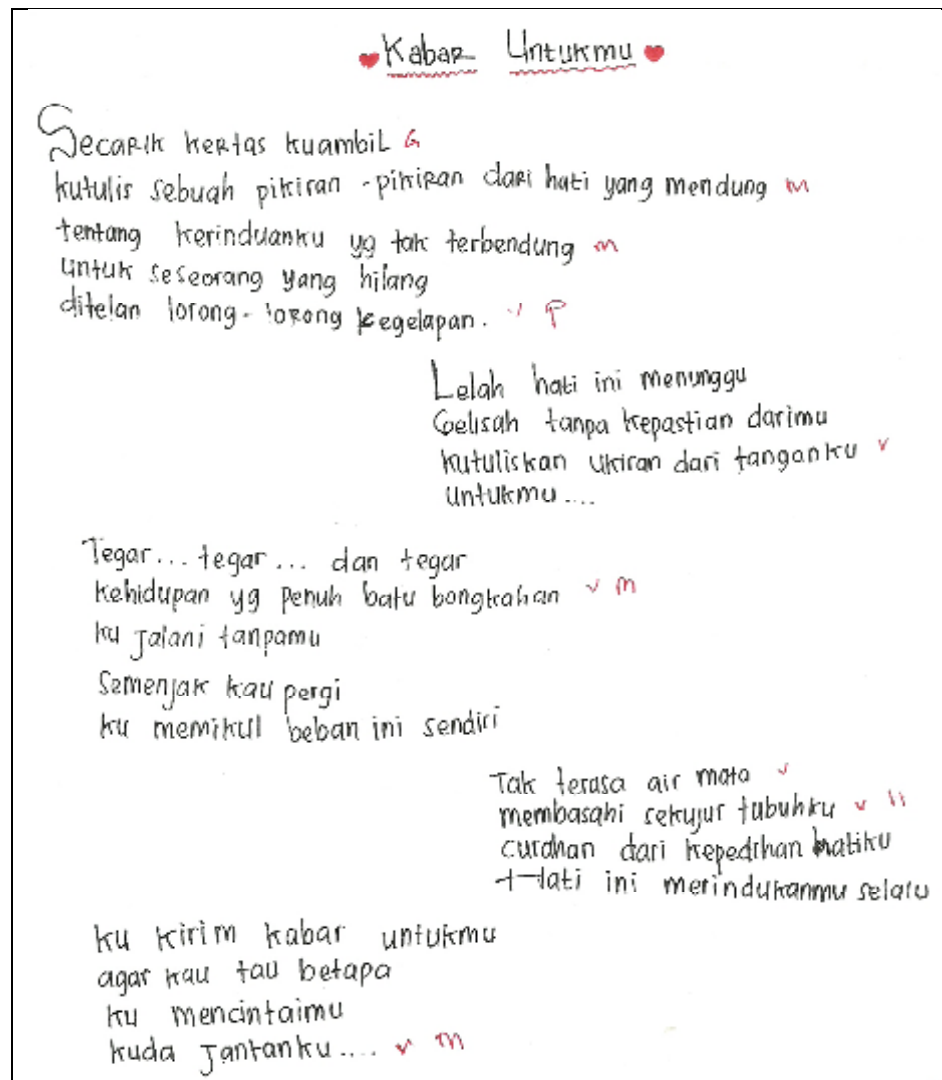 Kabar Untukmu
Secarik kertas kuambil G
kutulis sebuah pikiran-pikiran dari hati yang mendung m
tentang kerinduanku yg tak terbendung m
untuk seseorang yang hilang
ditelan lorong-lorong kegelapan. v P
Lelah hati ini menunggu
Gelisah tanpa kepastian darimu
kutuliskan ukiran dari tanganku v
untukmu....
Tegar... tegar... dan tegar
kehidupan yg penuh batu bongkahan v m
ku jalani tanpamu
Semenjak kau pergi
ku memikul beban ini sendiri
Tak terasa air mata v
membasahi sekujur tubuhku v
curahan dari kepedihan hatiku
Hati ini merindukanmu selalu
ku kirim kabar untukmu
agar kau tau betapa
ku mencintaimu
kuda Jantanku.... v m